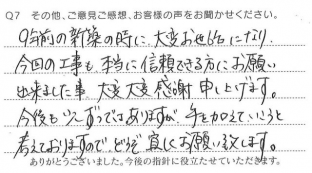 Q7 その他、ご意見ご感想、お客様の声をお聞かせください。
9年前の新築の時に、大変お世話になり、
今回の工事も、本当に信頼できる方にお願い
出来ました事、大変大変感謝申し上げます。
今後も少しずつではありますが、手を加えていこうと
考えておりますので、どうぞ宜しくお願い致します。
ありがとうございました。今後の指針に役立たせていただきます。